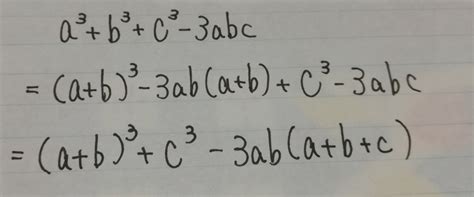 a³+b³+c³-3abc
=(a+b)³-3ab(a+b)+c³-3abc
=(a+b)³+c³-3ab(a+b+c)